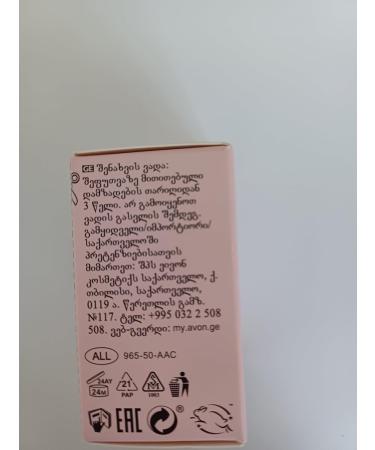 GE შენახვის ვადა:
შეფუთვაზე მითითებული
დამზადების თარიღიდან
3 წელი. არ გამოიყენოთ
ვადის გასვლის შემდეგ.
გამყიდველი/იმპორტიორი/
საქართველოში
პრეტენზიებისათვის
მიმართეთ: შპს ეივონ
კოსმეტიქს საქართველო, ქ.
თბილისი, საქართველო,
0119 ა. წერეთლის გამზ.
№117. ტელ: +995 032 2 508
508. ვებ-გვერდი: my.avon.ge
ALL 965-50-AAC
24AY
24M
21
PAP
1003
EAC